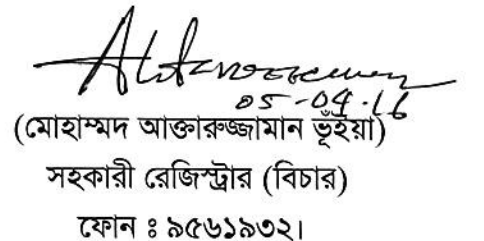 05-04-16
(মোহাম্মদ আক্তারুজ্জামান ভূঁইয়া)
সহকারী রেজিস্ট্রার (বিচার)
ফোন ঃ ৯৫৬১৯৩২।